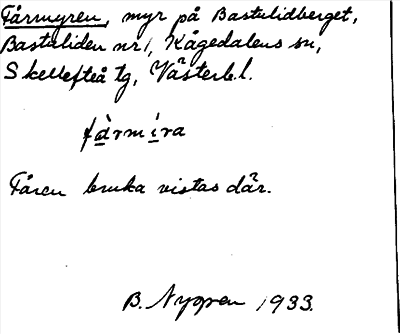 Fårmyren, myr på Bastulidberget,
Bastuliden nr 1, Kågedalens sn,
Skellefteå tg, Västerb. l.
fàrmíra
Fåren bruka vistas där.
B. Nygren 1933.